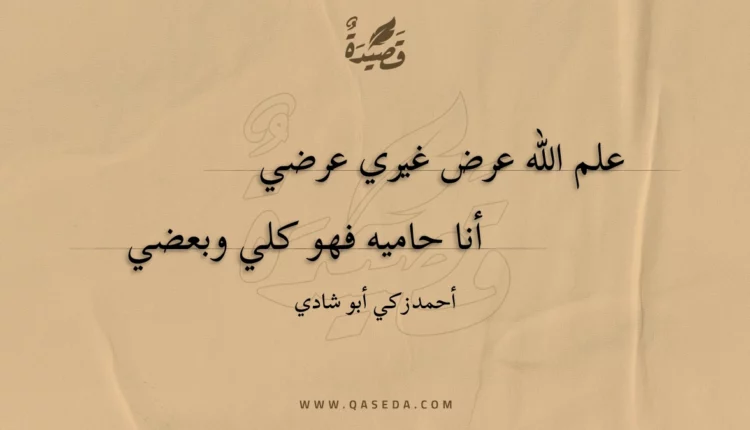 قَصِيْدَةٌ
علم الله عرض غيري عرضي
أنا حاميه فهو كلي وبعضي
أحمدزكي أبو شادي
WWW.QASEDA.COM